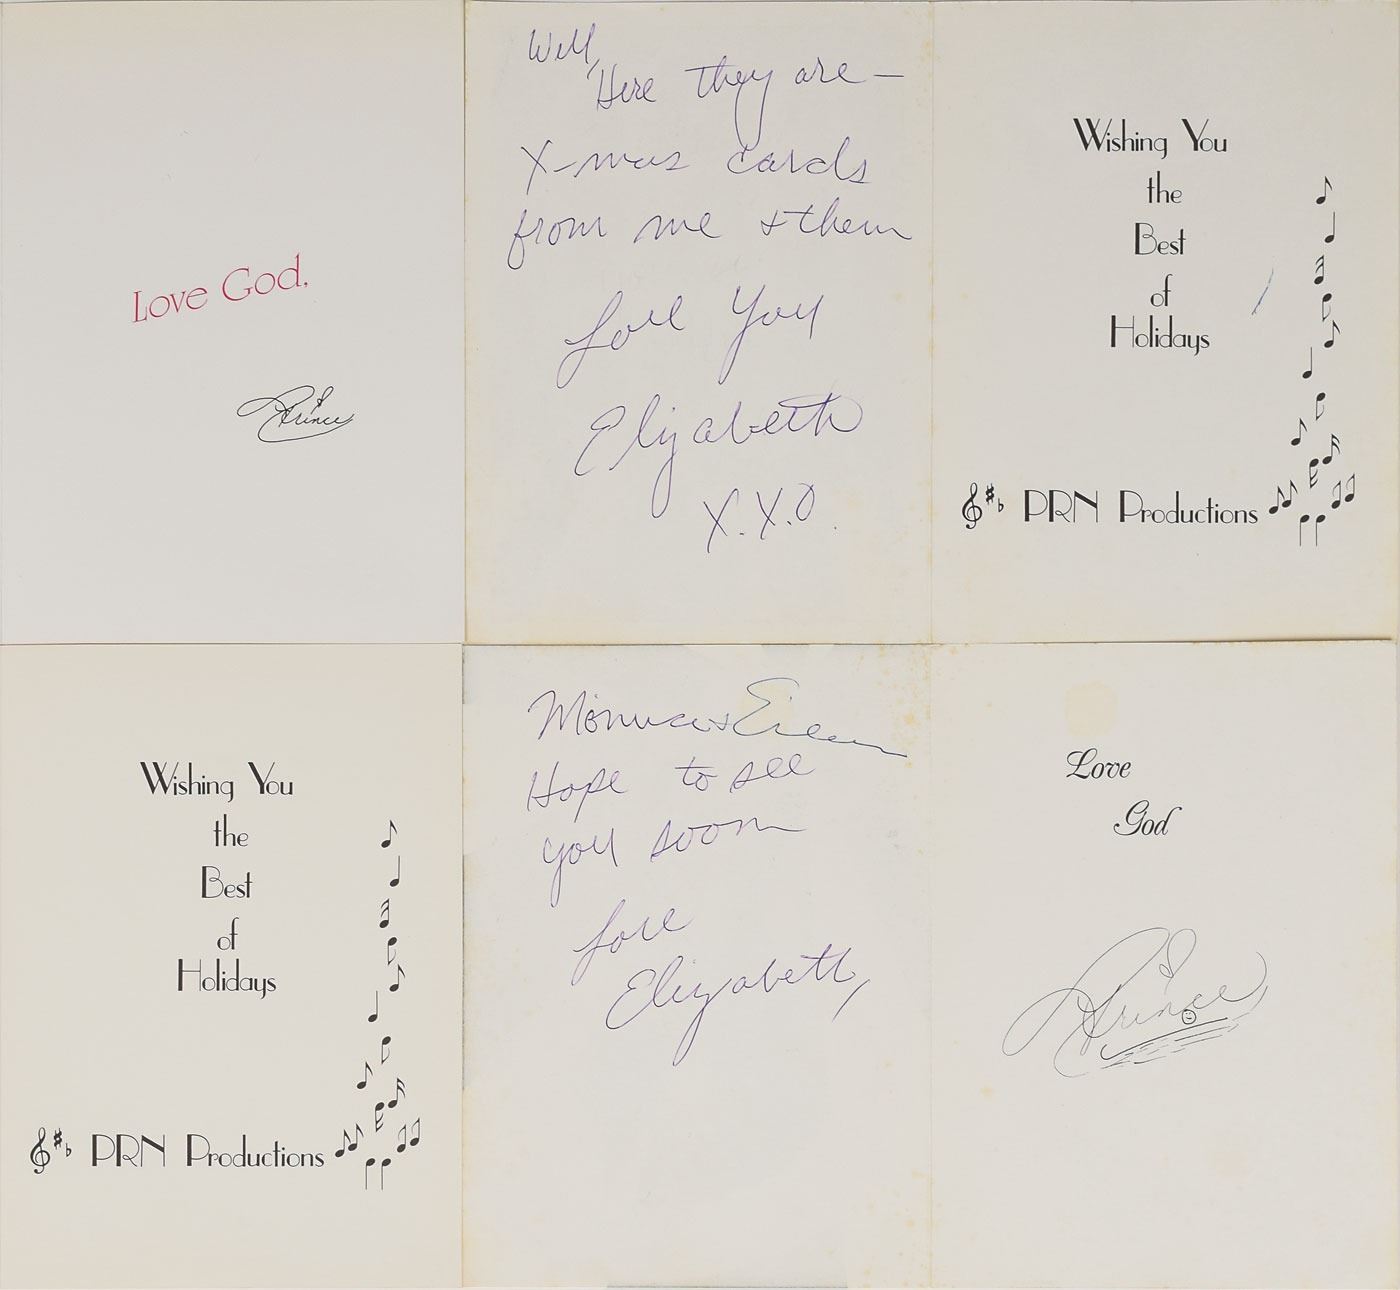 Love God,
Prince
Well,
Here they are —
X-mas cards
from me + them
Love You
Elizabeth
X.X.O.
Wishing You
the
Best
of
Holidays
PRN Productions
Wishing You
the
Best
of
Holidays
PRN Productions
Monica + Eileen
Hope to see
you soon
Love
Elizabeth,
Love
God
Prince